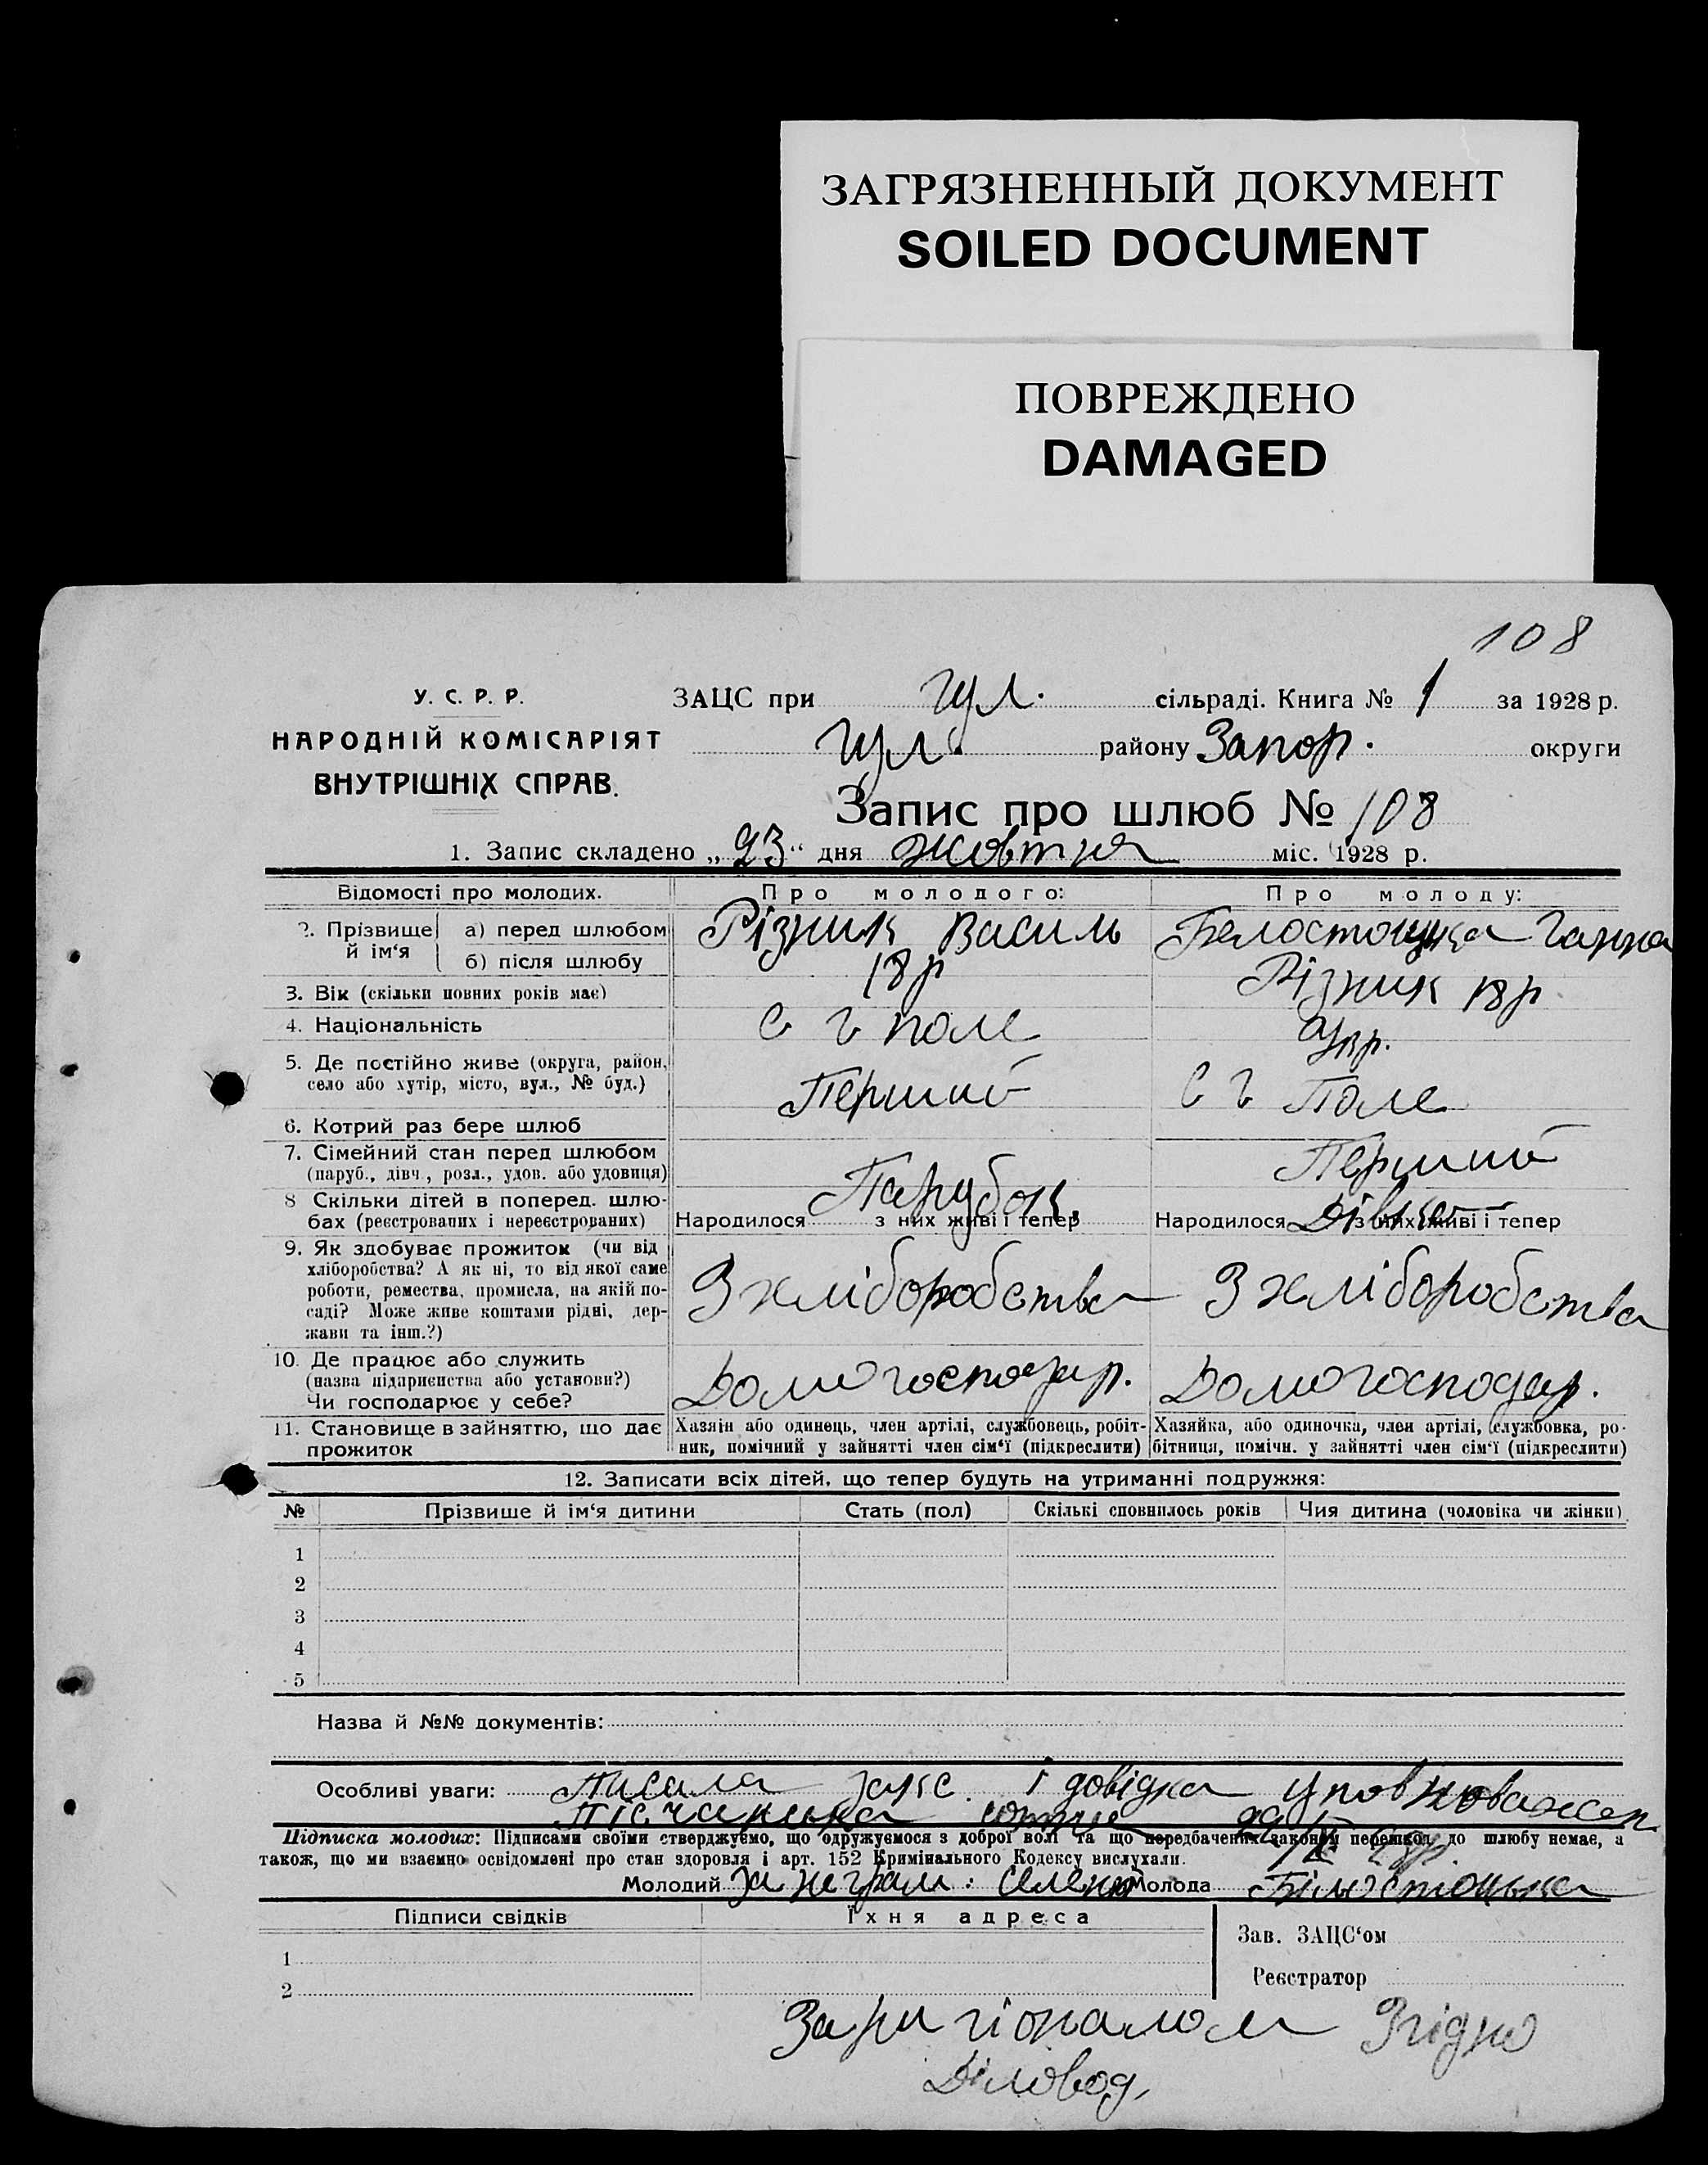 ЗАГРЯЗНЕННЫЙ ДОКУМЕНТ
SOILED DOCUMENT
ПОВРЕЖДЕНО
DAMAGED
108
У. С. Р. Р.
НАРОДНІЙ КОМІСАРІЯТ
ВНУТРІШНІХ СПРАВ.
ЗАЦС при Гул. сільраді. Книга № 1 за 1928 р.
Гул. району Запор. округи
Запис про шлюб № 108
1. Запис складено „23“ дня жовтня міс. 1928 р.
Відомості про молодих. Про молодого: Про молоду:
2. Прізвище й ім‘я а) перед шлюбом Різник Василь Белостоцька Ганна
б) після шлюбу Різник
3. Вік (скільки повних років має) 18 р 18 р
4. Національність Укр.
5. Де постійно живе (округа, район, село або хутір, місто, вул., № буд.) С Г Поле С Г Поле
6. Котрий раз бере шлюб Перший Перший
7. Сімейний стан перед шлюбом
(паруб., дівч., розл., удов. або удовиця) Парубок. Дівка
8 Скільки дітей в поперед. шлю-
бах (реєстрованих і нереєстрованих) Народилося з них живі і тепер Народилося з них живі і тепер
9. Як здобуває прожиток (чи від
хліборобства? А як ні, то від якої саме
роботи, ремества, промисла, на якій по-
саді? Може живе коштами рідні, дер-
жави та інш.?)
З хліборобства З хліборобства
10. Де працює або служить
(назва підприємства або установи?)
Чи господарює у себе?
Домогосподар. Домогосподар.
11. Становище в зайняттю, що дає
прожиток
Хазяїн або одинець, член артілі, службовець, робіт-
ник, помічний у зайнятті член сім‘ї (підкреслити)
Хазяйка, або одиночка, член артілі, службовка, ро-
бітниця, помічн. у зайнятті член сім‘ї (підкреслити)
12. Записати всіх дітей, що тепер будуть на утриманні подружжя:
№ Прізвище й ім‘я дитини Стать (пол) Скількі сповнилось років Чия дитина (чоловіка чи жінки)
1
2
3
4
5
Назва й №№ документів:
Особливі уваги: Писала і довідка уповноважен.
Підписка молодих: Підписами своїми стверджуємо, що одружуємося з доброї волі та що передбачених законом перешкод до шлюбу немає, а
також, що ми взаємно освідомлені про стан здоровля і арт. 152 Кримінального Кодексу вислухали.
Молодий за неграм. Молода Білостоцька
Підписи свідків Їхня адреса
1
2
Зав. ЗАЦС‘ом
Реєстратор
Згідно
Діловод.